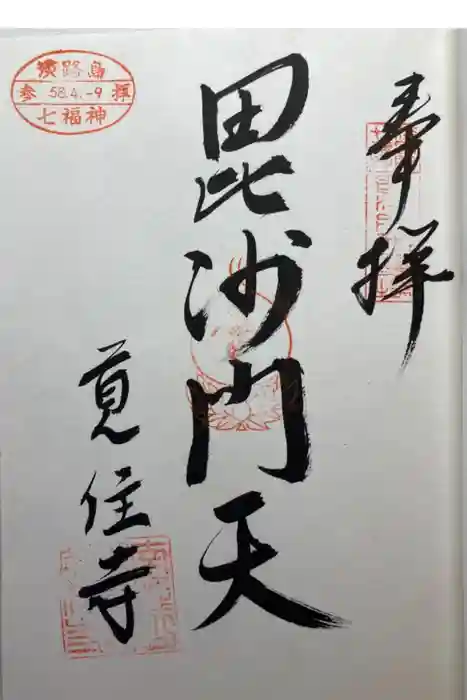 奉拝
毘沙門天
淡路島
参 58.4.-9 拝
七福神
覚住寺